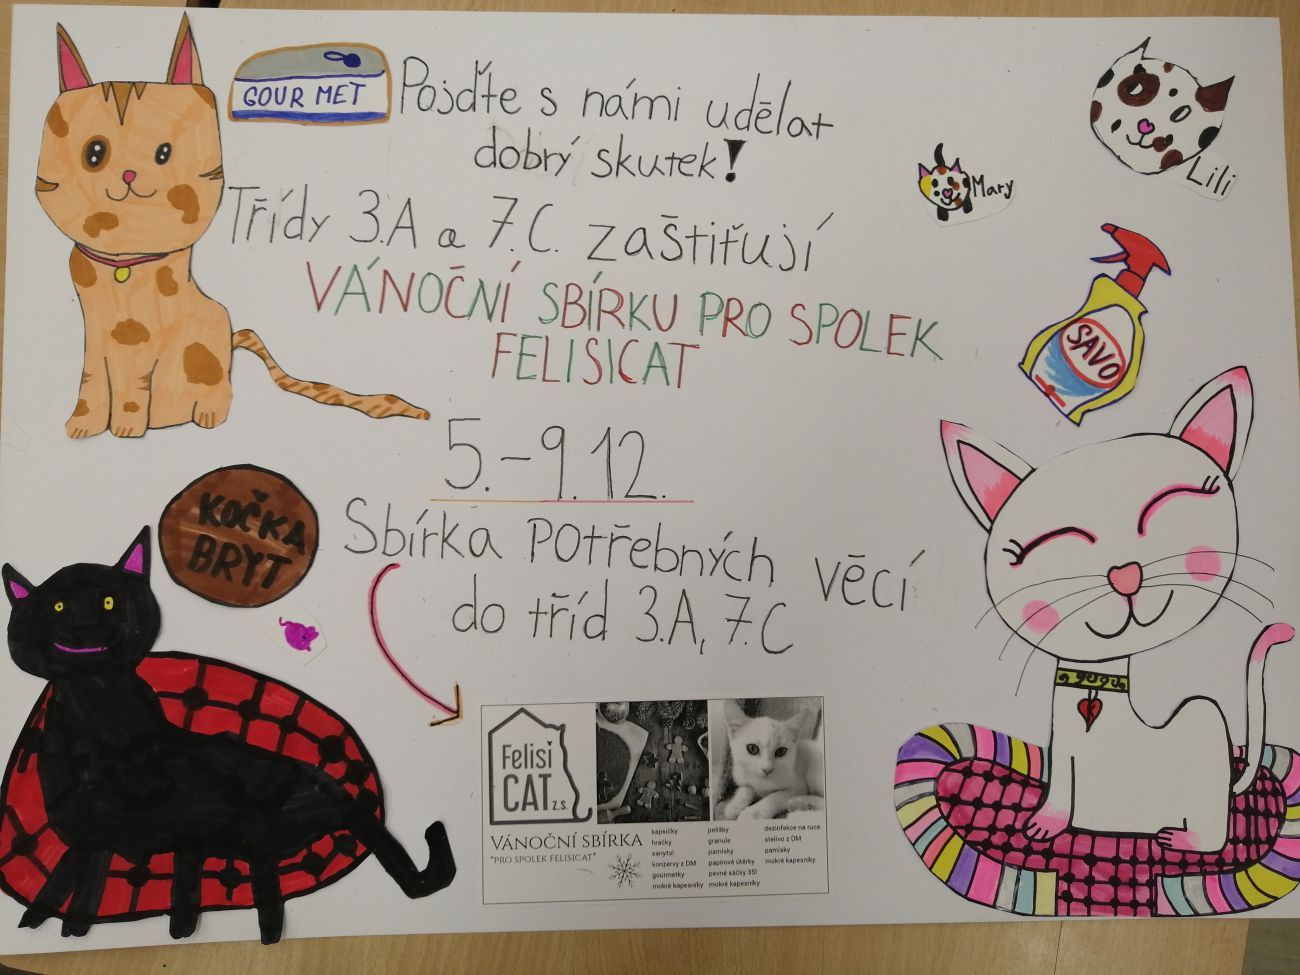 GOURMET
Pojďte s námi udělat
dobrý skutek!
Třídy 3.A a 7.C. zaštiťují
VÁNOČNÍ SBÍRKU PRO SPOLEK
FELISICAT
5.-9.12.
Sbírka potřebných věcí
do tříd 3.A, 7.C
Mary
Lili
SAVO
KOČKA
BRYT
Felisi
CAT z.s.
VÁNOČNÍ SBÍRKA
"PRO SPOLEK FELISICAT"
kapsičky
hračky
sanytol
konzervy z DM
gourmetky
mokré kapesníky
pelíšky
granule
pamlsky
papírové útěrky
pevné sáčky 35l
mokré kapesníky
dezinfekce na ruce
stelivo z DM
pamlsky
mokré kapesníky